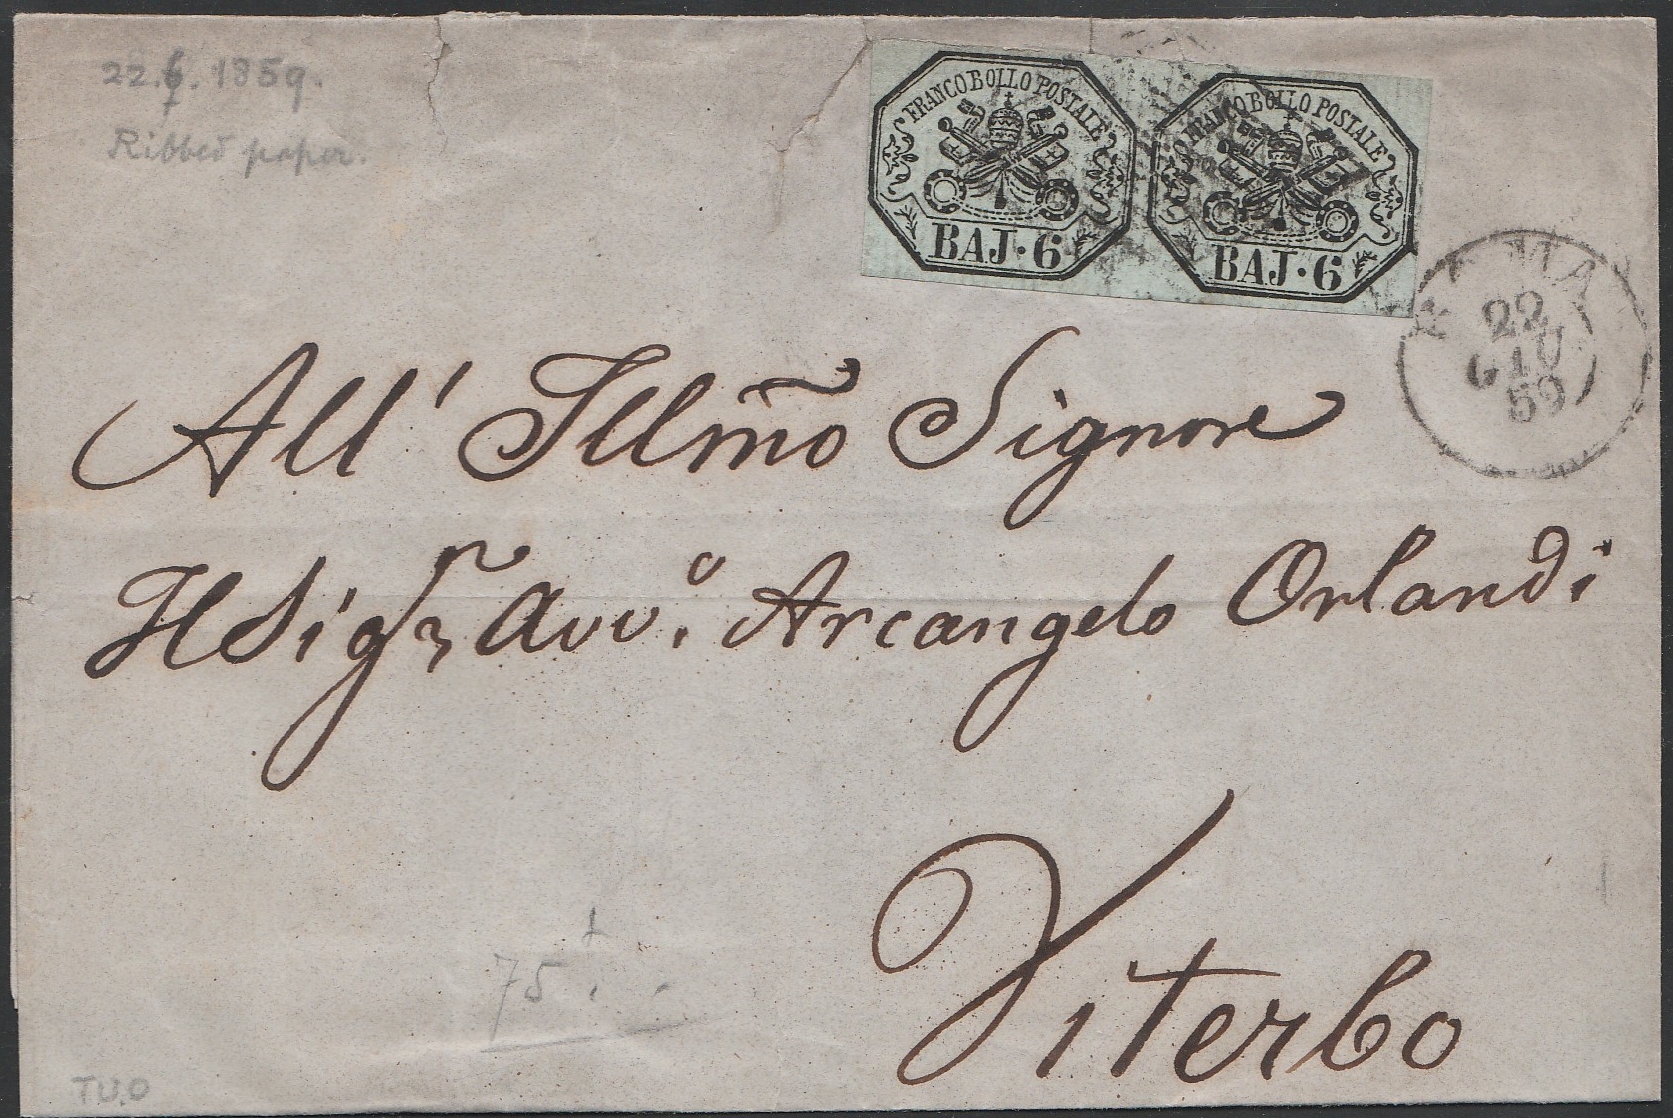 22.6.1859.
Ribbed paper.
FRANCO BOLLO POSTALE
BAJ·6
FRANCO BOLLO POSTALE
BAJ·6
ROMA
22
GIU
59
All' Illm̃o Signore
Il Sig̃ Avv.o Arcangelo Orlandi
Viterbo
75
TU.O